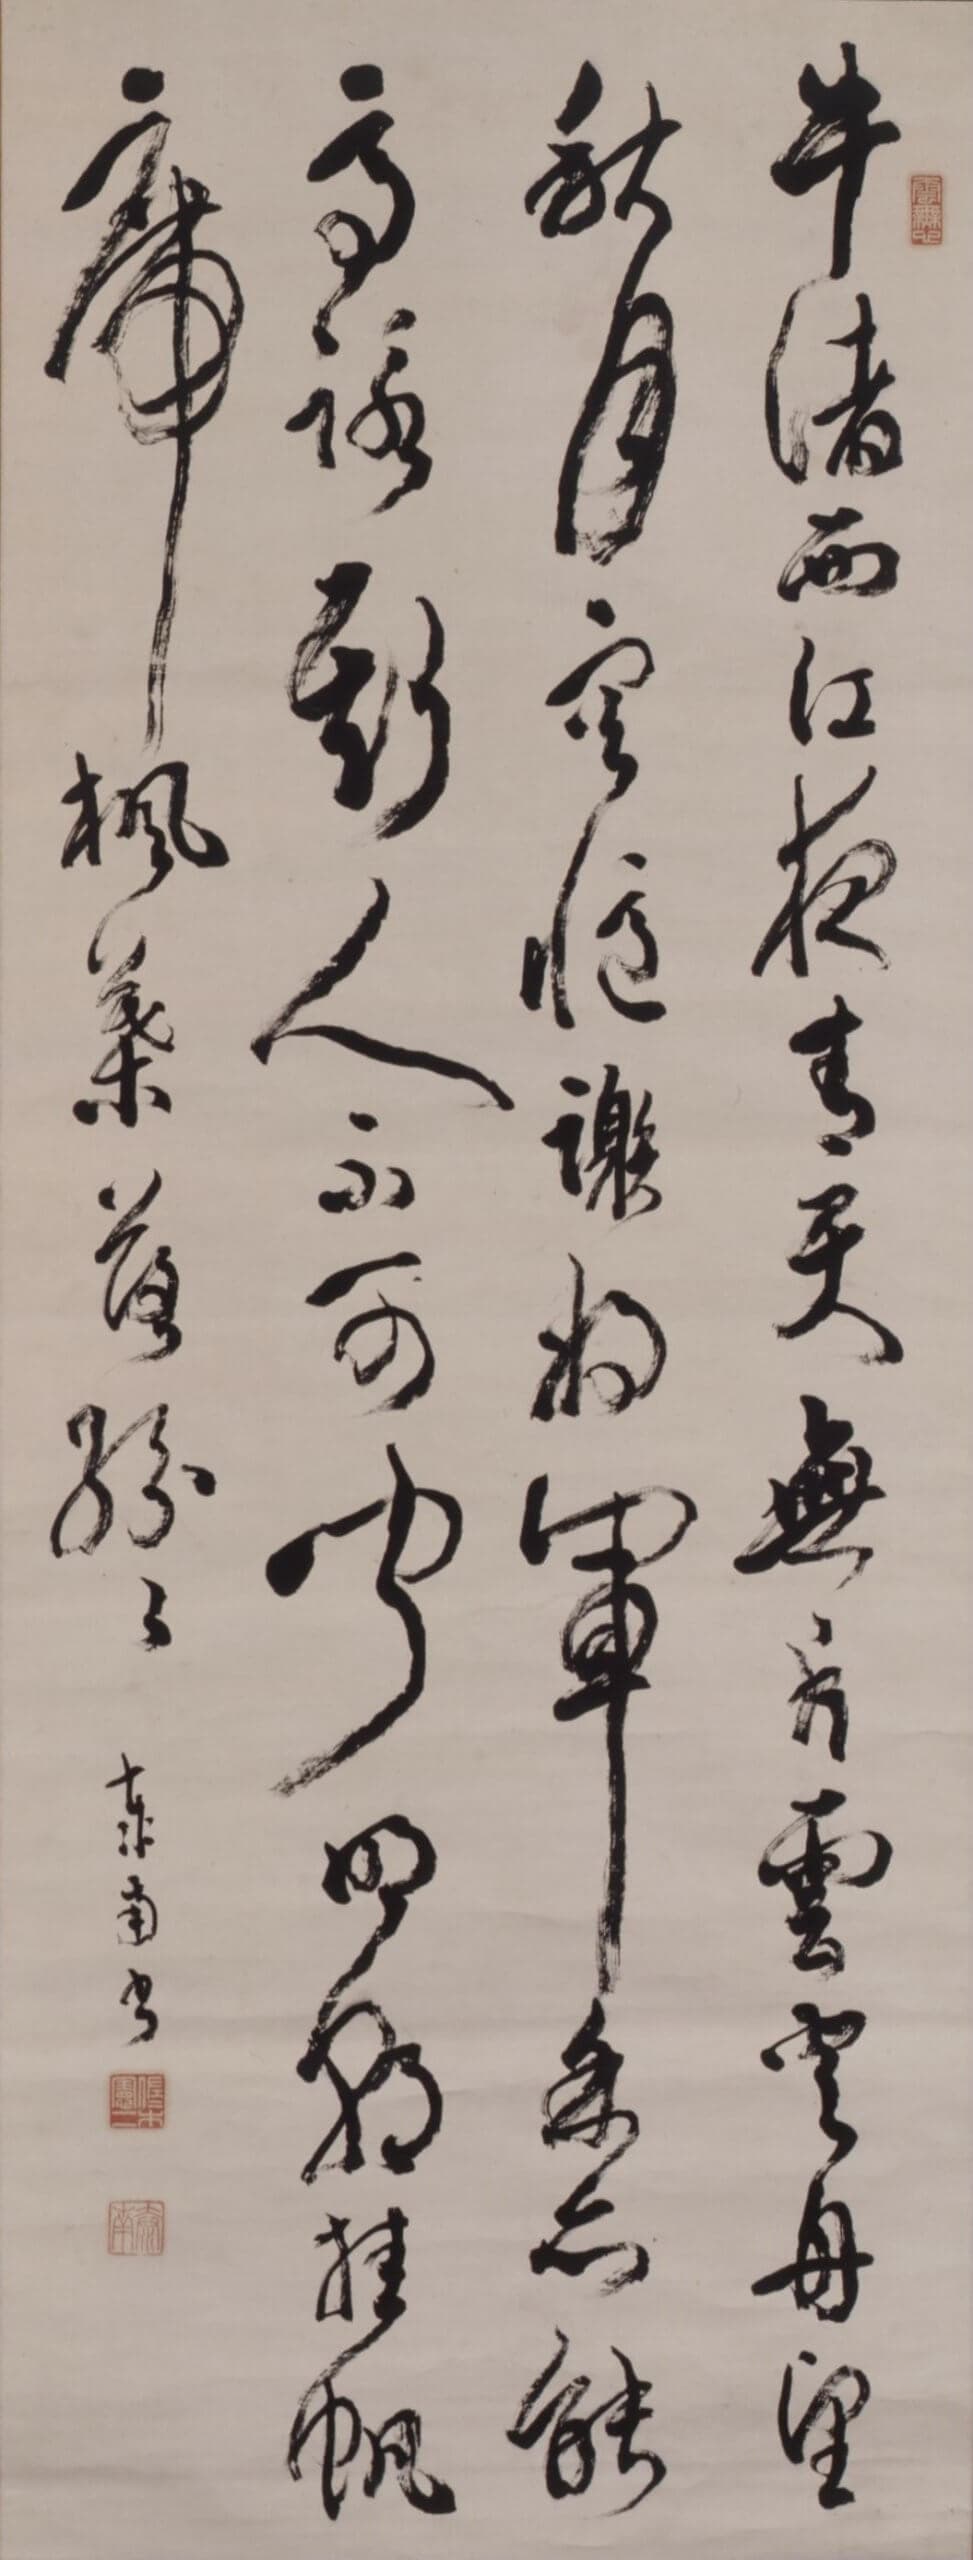 雲無心
牛渚西江夜青天無片雲登舟望
秋月空憶謝將軍余亦能
高詠斯人不可聞明朝挂帆
席楓葉落紛々
泰南書
泰南